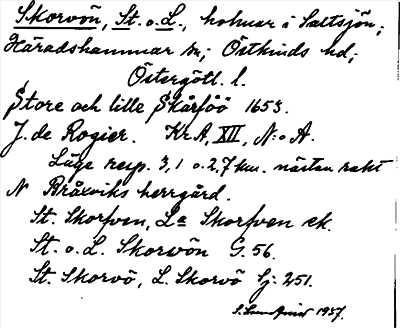 Skorvön, St. o. L., holmar i Saltsjön;
Häradshammar sn; Östkinds hd;
Östergötl. l.
Store och lille Skårföö 1653.
J. de Rogier. Kr.A, XII, N:o A.
Läge resp. 3,1 o. 2,7 km. nästan rakt
N Bråxviks herrgård.
St. Skorfven, La Skorfven ek.
St. o. L. Skorvön G. 56.
St. Skorvö, L. Skorvö Sj: 251.
1937.